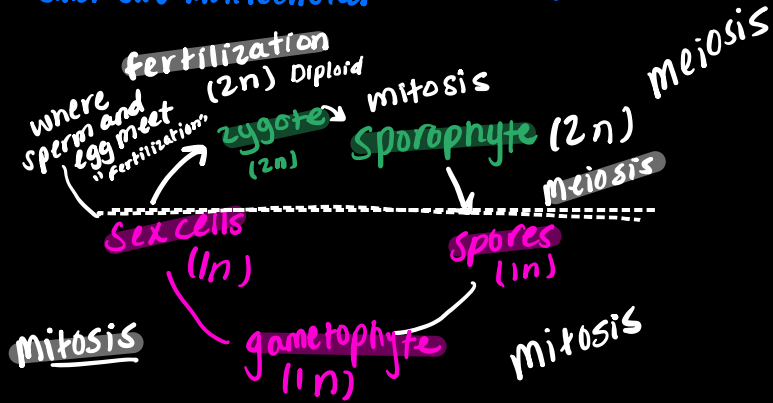 fertilization
(2n) Diploid
where
sperm and
egg meet
"fertilization"
zygote
(2n)
mitosis
sporophyte (2n)
meiosis
meiosis
sex cells
(1n)
spores
(1n)
mitosis
gametophyte
(1n)
mitosis